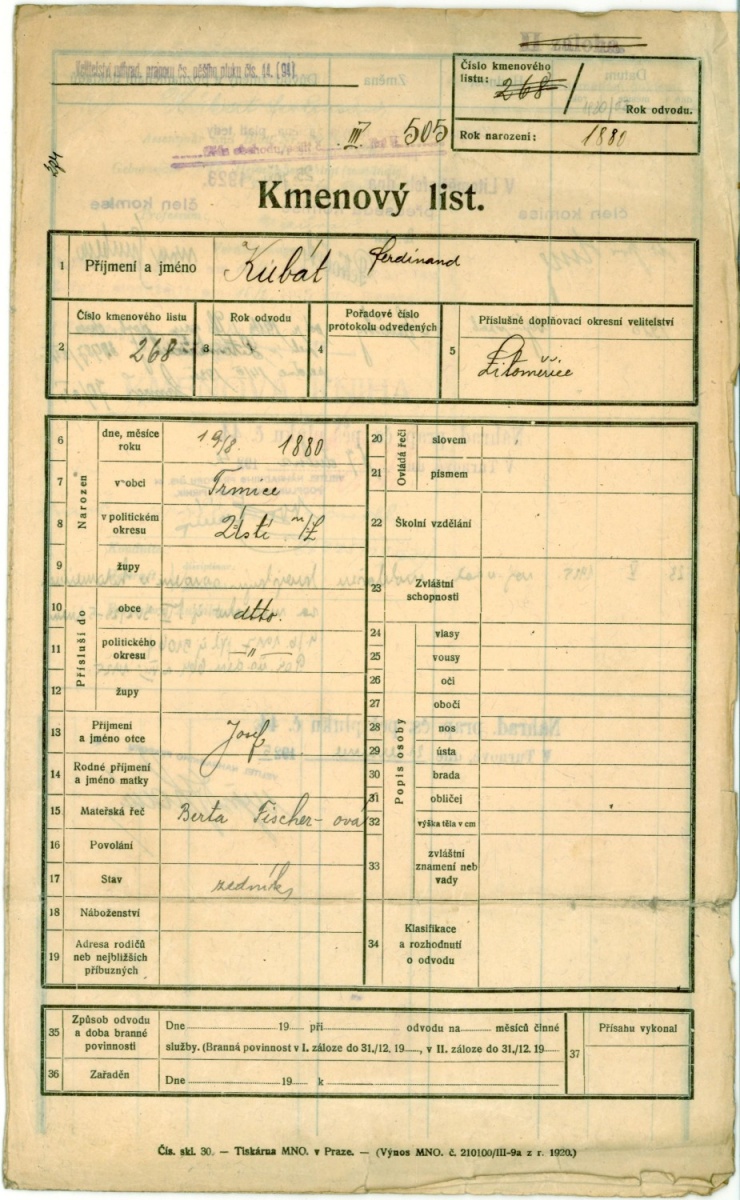 Číslo kmenového
listu: 268 /
Rok odvodu.
Rok narození: 1880
III. 505
Kmenový list.
1 Příjmení a jméno Kubát Ferdinand
2 Číslo kmenového listu 268
3 Rok odvodu
4 Pořadové číslo
protokolu odvedených
5 Příslušné doplňovací okresní velitelství
Litoměřice
Narozen
6 dne, měsíce
roku 19/8. 1880
7 v obci Trmice
8 v politickém
okresu Ústí n/L
9 župy
Přísluší do
10 obce dtto.
11 politického
okresu — " —
12 župy
13 Příjmení
a jméno otce Josef
14 Rodné příjmení
a jméno matky
15 Mateřská řeč Berta Fischer-ová
16 Povolání
17 Stav zedník
18 Náboženství
19 Adresa rodičů
neb nejbližších
příbuzných
Ovládá řeči
20 slovem
21 písmem
22 Školní vzdělání
23 Zvláštní
schopnosti
Popis osoby
24 vlasy
25 vousy
26 oči
27 obočí
28 nos
29 ústa
30 brada
31 obličej
32 výška těla v cm
33 zvláštní
znamení neb
vady
34 Klasifikace
a rozhodnutí
o odvodu
35 Způsob odvodu
a doba branné
povinnosti
Dne 19 při odvodu na měsíců činné
služby. (Branná povinnost v I. záloze do 31./12. 19, v II. záloze do 31./12. 19
36 Zařaděn Dne 19 k
37 Přísahu vykonal
Čís. skl. 30. — Tiskárna MNO. v Praze. — (Výnos MNO. č. 210100/III-9a z r. 1920.)